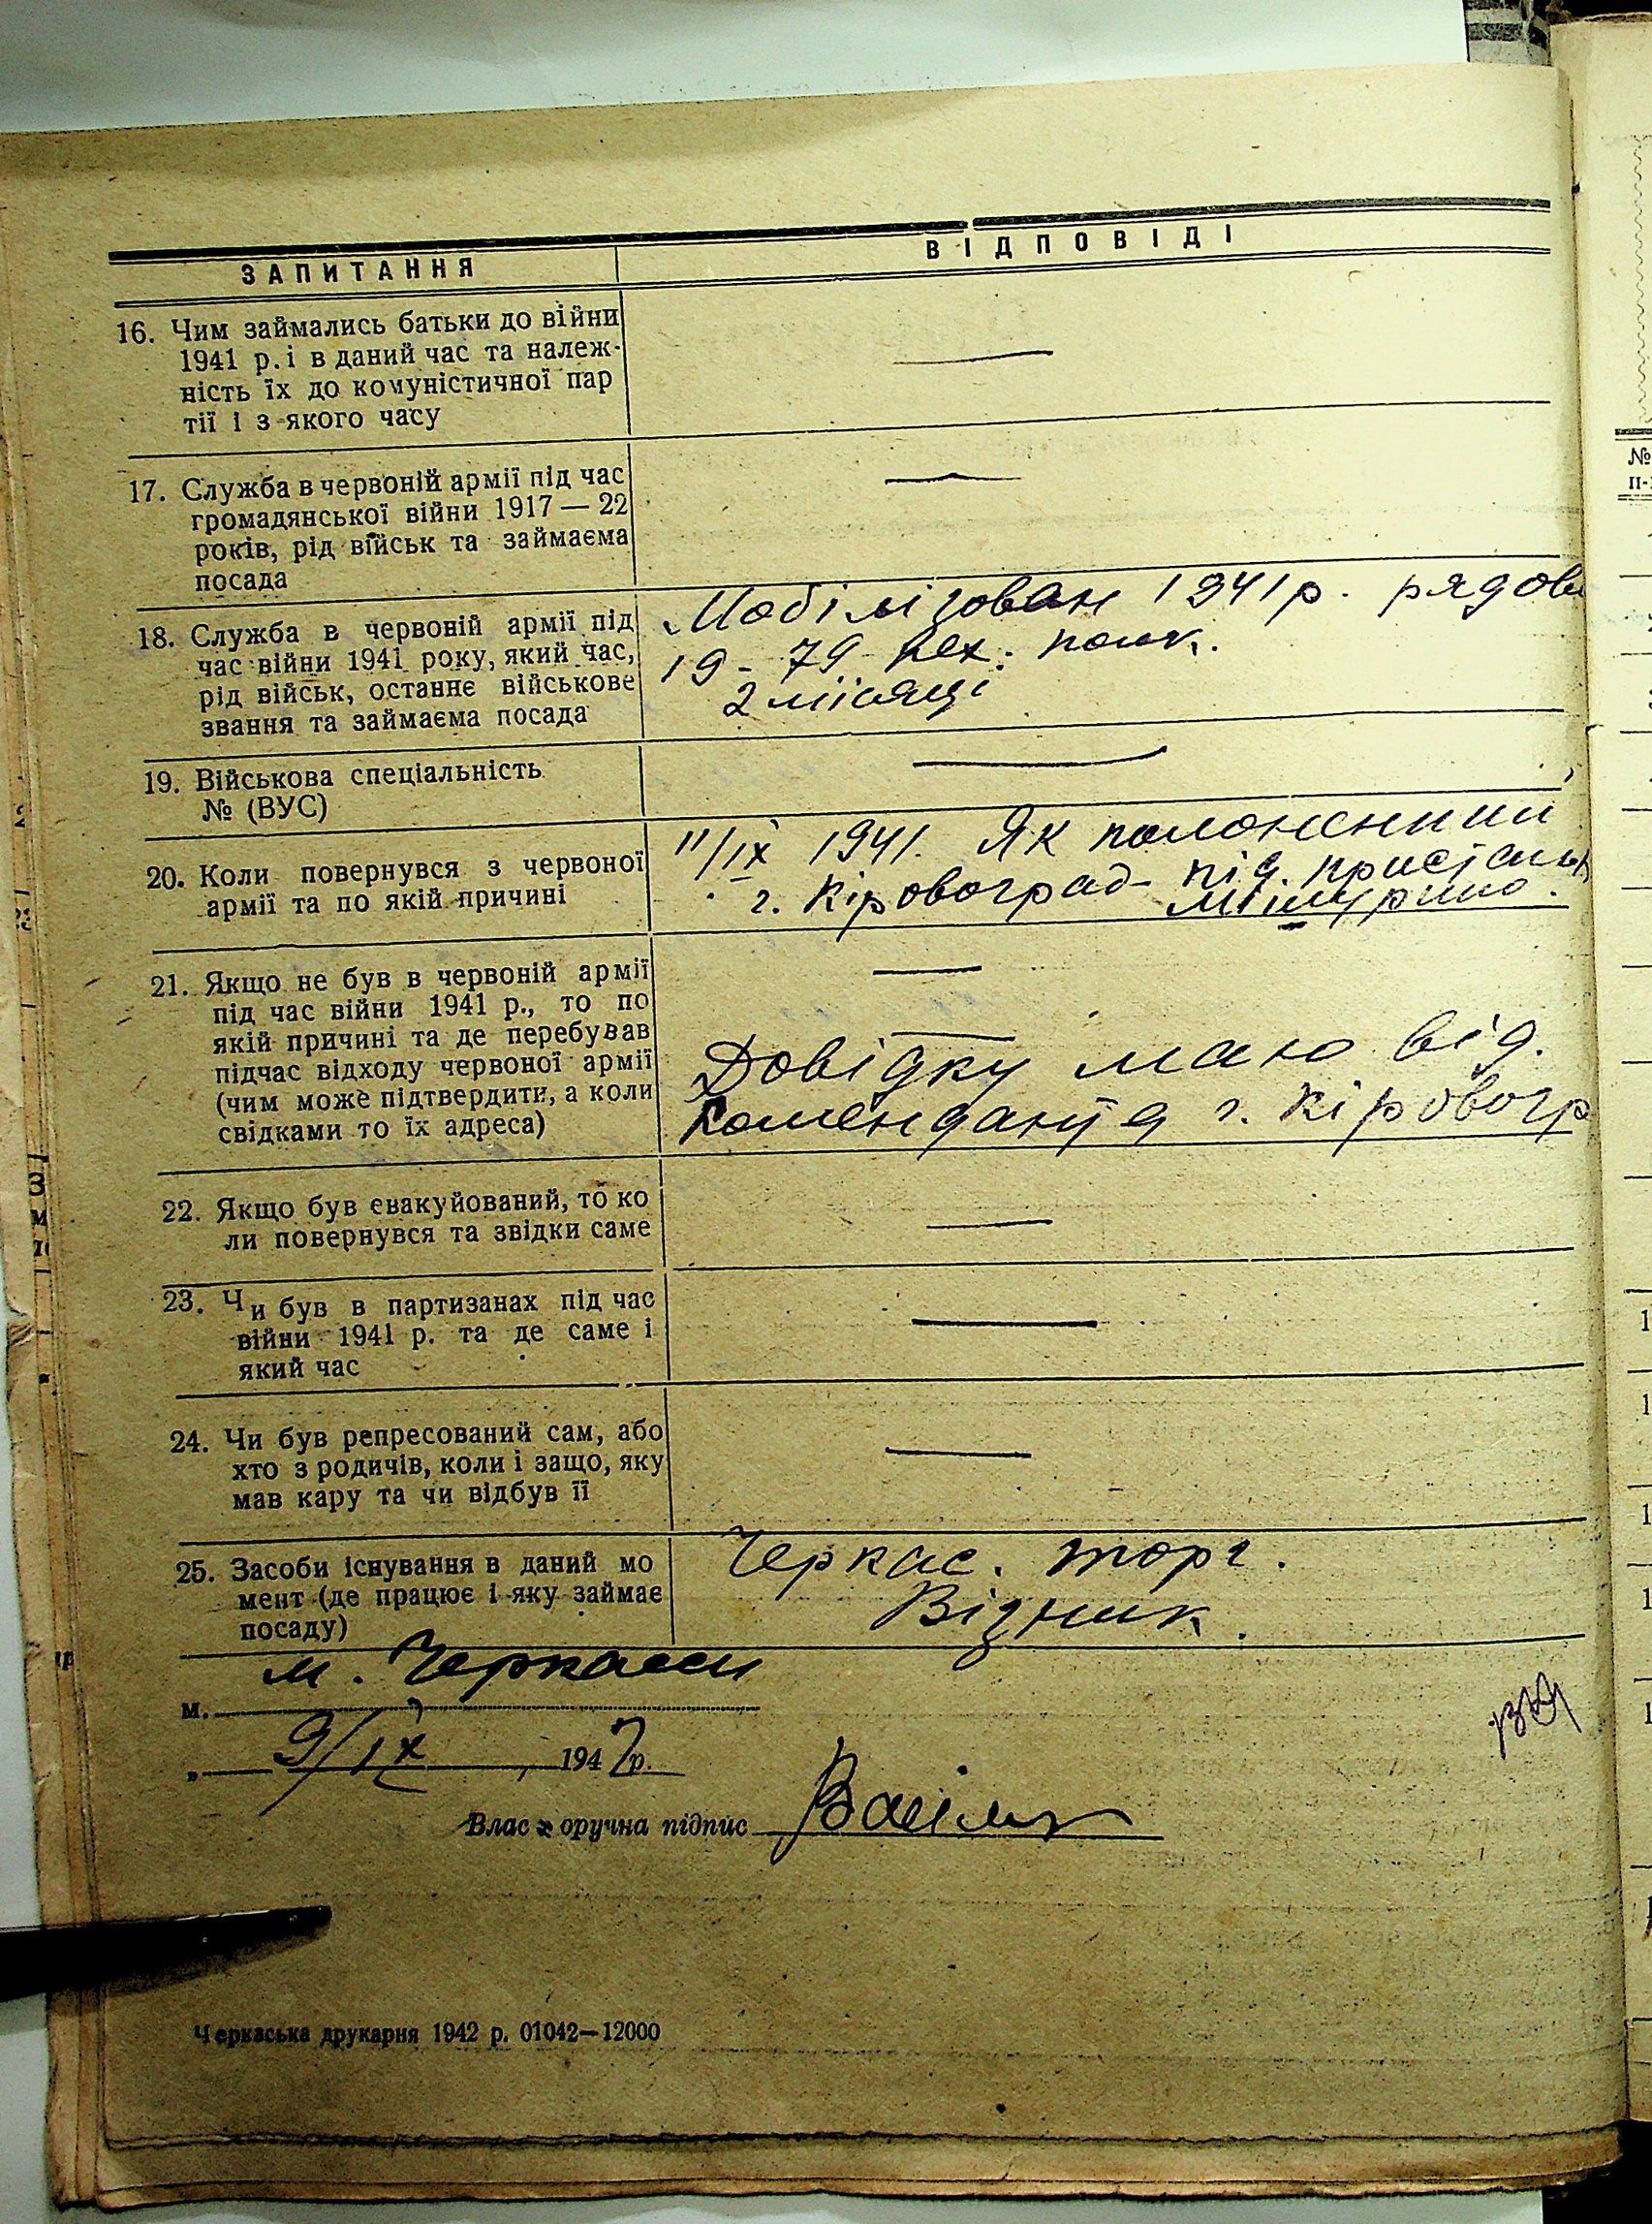 ЗАПИТАННЯ
ВІДПОВІДІ
16. Чим займались батьки до війни
1941 р. і в даний час та належ-
ність їх до комуністичної пар
тії і з якого часу
—
17. Служба в червоній армії під час
громадянської війни 1917 — 22
років, рід військ та займаєма
посада
—
18. Служба в червоній армії під
час війни 1941 року, який час,
рід військ, останнє військове
звання та займаєма посада
Мобілізован 1941 р. рядови
19 - 79 пех. полк.
2 місяці
19. Військова спеціальність
№ (ВУС)
—
20. Коли повернувся з червоної
армії та по якій причині
11/ІХ 1941. Як полонений
г. Кіровоград під
21. Якщо не був в червоній армії
під час війни 1941 р., то по
якій причині та де перебував
підчас відходу червоної армії
(чим може підтвердити, а коли
свідками то їх адреса)
—
Довідку маю від.
Коменданта г. Кіровогр
22. Якщо був евакуйований, то ко
ли повернувся та звідки саме
—
23. Чи був в партизанах під час
війни 1941 р. та де саме і
який час
—
24. Чи був репресований сам, або
хто з родичів, коли і защо, яку
мав кару та чи відбув її
—
25. Засоби існування в даний мо
мент (де працює і яку займає
посаду)
Черкас. торг.
Візник.
м. Черкасси
м.
„ 9/ІХ 1942 р.
Влас оручна підпис
Черкаська друкарня 1942 р. 01042—12000
№